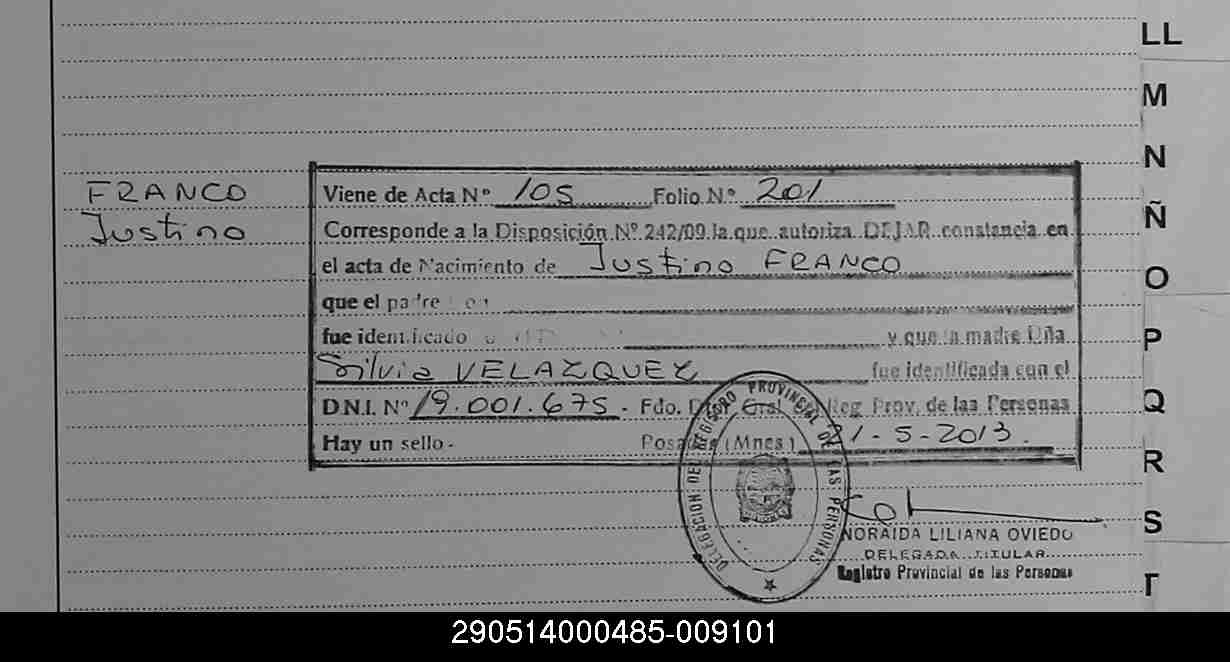 LL
M
N
Ñ
O
P
Q
R
S
T
FRANCO
Justino
Viene de Acta Nº 105 Folio N.º 201
Corresponde a la Disposición Nº 242/09 la que autoriza DEJAR constancia en
el acta de Nacimiento de Justino FRANCO
que el padre
fue identificado y que la madre Dña
Silvia VELAZQUEZ fue identificada con el
D.N.I. Nº 19.001.675. Fdo. Gral Reg Prov. de las Personas
Hay un sello - Posadas (Mnes) 21-5-2013.
DELEGACION DEL REGISTRO PROVINCIAL DE LAS PERSONAS
NORAIDA LILIANA OVIEDO
DELEGADA TITULAR
Registro Provincial de las Personas
290514000485-009101